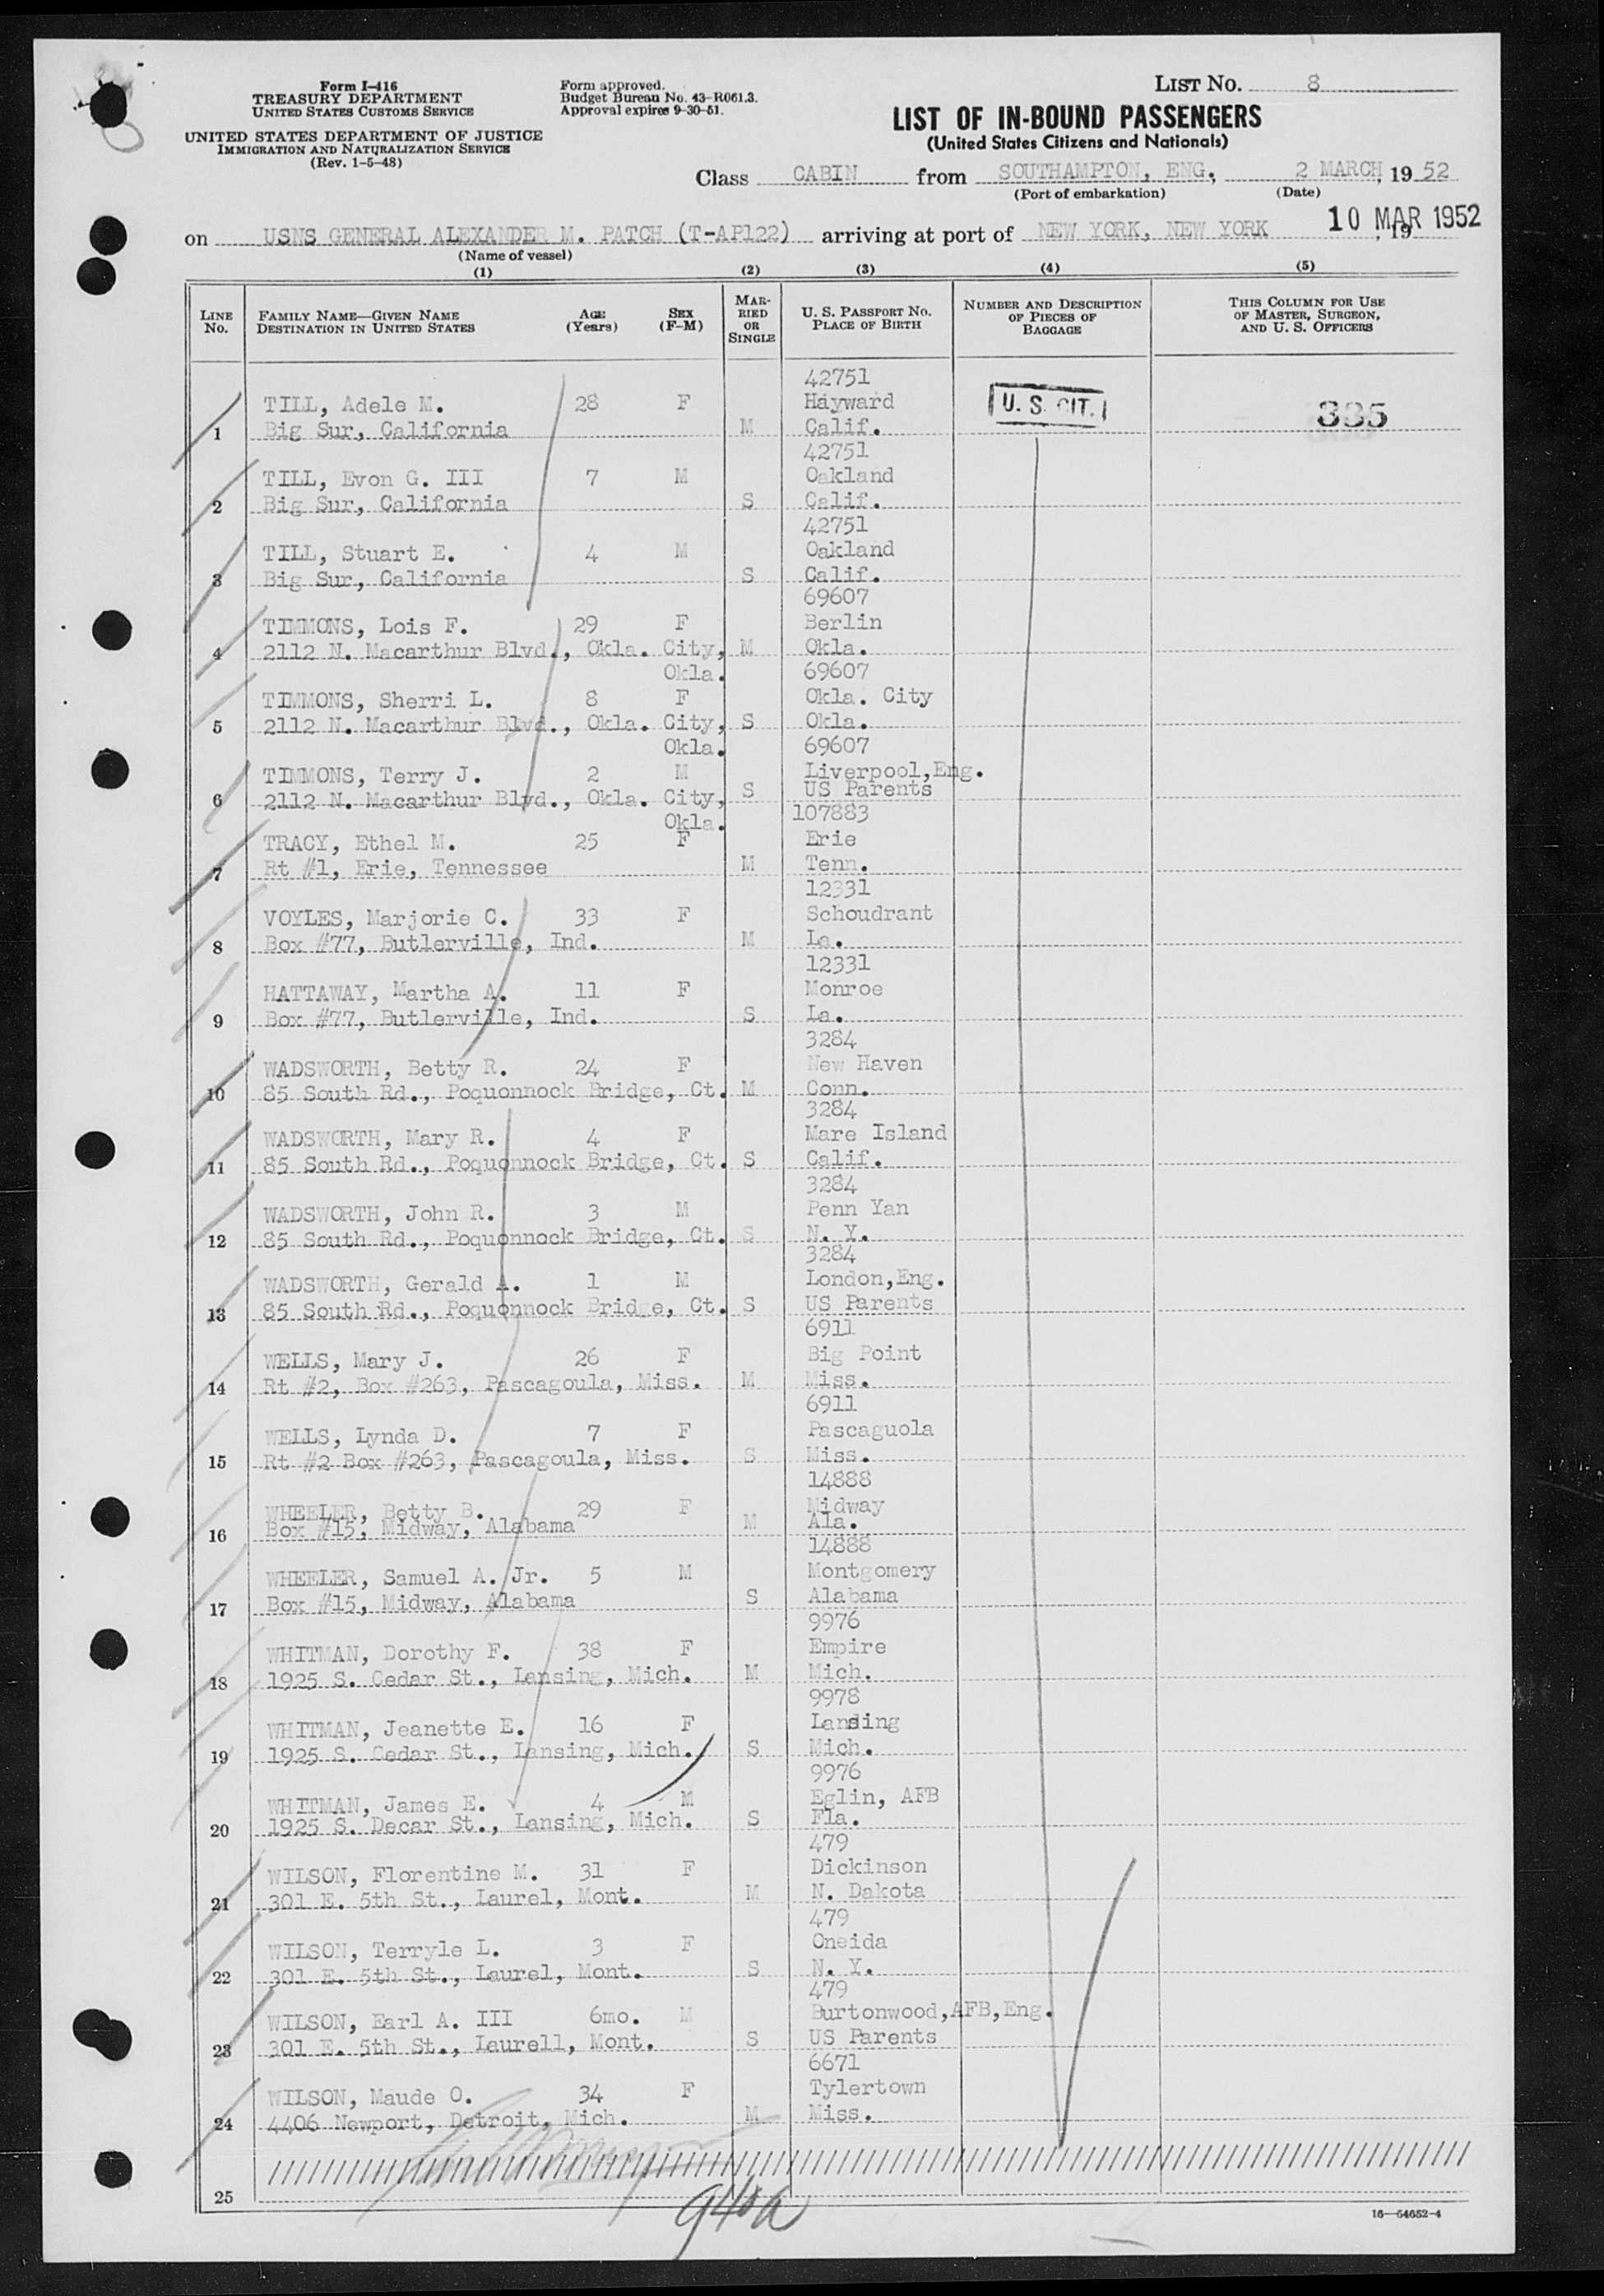 LIST No. 8
Form I-416
TREASURY DEPARTMENT
UNITED STATES CUSTOMS SERVICE
UNITED STATES DEPARTMENT OF JUSTICE
IMMIGRATION AND NATURALIZATION SERVICE
(Rev. 1-5-48)
Form approved.
Budget Bureau No. 43-R061.3.
Approval expires 9-30-51.
LIST OF IN-BOUND PASSENGERS
(United States Citizens and Nationals)
Class CABIN from SOUTHAMPTON, ENG., 2 MARCH, 19 52
(Port of embarkation) (Date)
on USNS GENERAL ALEXANDER M. PATCH (T-AP122) arriving at port of NEW YORK, NEW YORK 10 MAR 1952, 19
(Name of vessel)
(1) (2) (3) (4) (5)
LINE No. FAMILY NAME—GIVEN NAME DESTINATION IN UNITED STATES AGE (Years) SEX (F-M) MARRIED OR SINGLE U. S. PASSPORT No. PLACE OF BIRTH NUMBER AND DESCRIPTION OF PIECES OF BAGGAGE THIS COLUMN FOR USE OF MASTER, SURGEON, AND U. S. OFFICERS
42751
TILL, Adele M. 28 F Hayward U. S. CIT. 335
1 Big Sur, California M Calif.
42751
TILL, Evon G. III 7 M Oakland
2 Big Sur, California S Calif.
42751
TILL, Stuart E. 4 M Oakland
3 Big Sur, California S Calif.
69607
TIMMONS, Lois F. 29 F Berlin
4 2112 N. Macarthur Blvd., Okla. City, M Okla.
Okla. 69607
TIMMONS, Sherri L. 8 F Okla. City
5 2112 N. Macarthur Blvd., Okla. City, S Okla.
Okla. 69607
TIMMONS, Terry J. 2 M Liverpool,Eng.
6 2112 N. Macarthur Blvd., Okla. City, S US Parents
Okla. 107883
TRACY, Ethel M. 25 F Erie
7 Rt #1, Erie, Tennessee M Tenn.
12331
VOYLES, Marjorie C. 33 F Schoudrant
8 Box #77, Butlerville, Ind. M La.
12331
HATTAWAY, Martha A. 11 F Monroe
9 Box #77, Butlerville, Ind. S La.
3284
WADSWORTH, Betty R. 24 F New Haven
10 85 South Rd., Poquonnock Bridge, Ct. M Conn.
3284
WADSWORTH, Mary R. 4 F Mare Island
11 85 South Rd., Poquonnock Bridge, Ct. S Calif.
3284
WADSWORTH, John R. 3 M Penn Yan
12 85 South Rd., Poquonnock Bridge, Ct. S N. Y.
3284
WADSWORTH, Gerald A. 1 M London,Eng.
13 85 South Rd., Poquonnock Bridge, Ct. S US Parents
6911
WELLS, Mary J. 26 F Big Point
14 Rt #2, Box #263, Pascagoula, Miss. M Miss.
6911
WELLS, Lynda D. 7 F Pascaguola
15 Rt #2 Box #263, Pascagoula, Miss. S Miss.
14888
WHEELER, Betty B. 29 F Midway
16 Box #15, Midway, Alabama M Ala.
14888
WHEELER, Samuel A. Jr. 5 M Montgomery
17 Box #15, Midway, Alabama S Alabama
9976
WHITMAN, Dorothy F. 38 F Empire
18 1925 S. Cedar St., Lansing, Mich. M Mich.
9978
WHITMAN, Jeanette E. 16 F Lansing
19 1925 S. Cedar St., Lansing, Mich. S Mich.
9976
WHITMAN, James E. 4 M Eglin, AFB
20 1925 S. Decar St., Lansing, Mich. S Fla.
479
WILSON, Florentine M. 31 F Dickinson
21 301 E. 5th St., Laurel, Mont. M N. Dakota
479
WILSON, Terryle L. 3 F Oneida
22 301 E. 5th St., Laurel, Mont. S N. Y.
479
WILSON, Earl A. III 6mo. M Burtonwood,AFB,Eng.
23 301 E. 5th St., Laurell, Mont. S US Parents
6671
WILSON, Maude O. 34 F Tylertown
24 4406 Newport, Detroit, Mich. M Miss.
25
16—54652-4